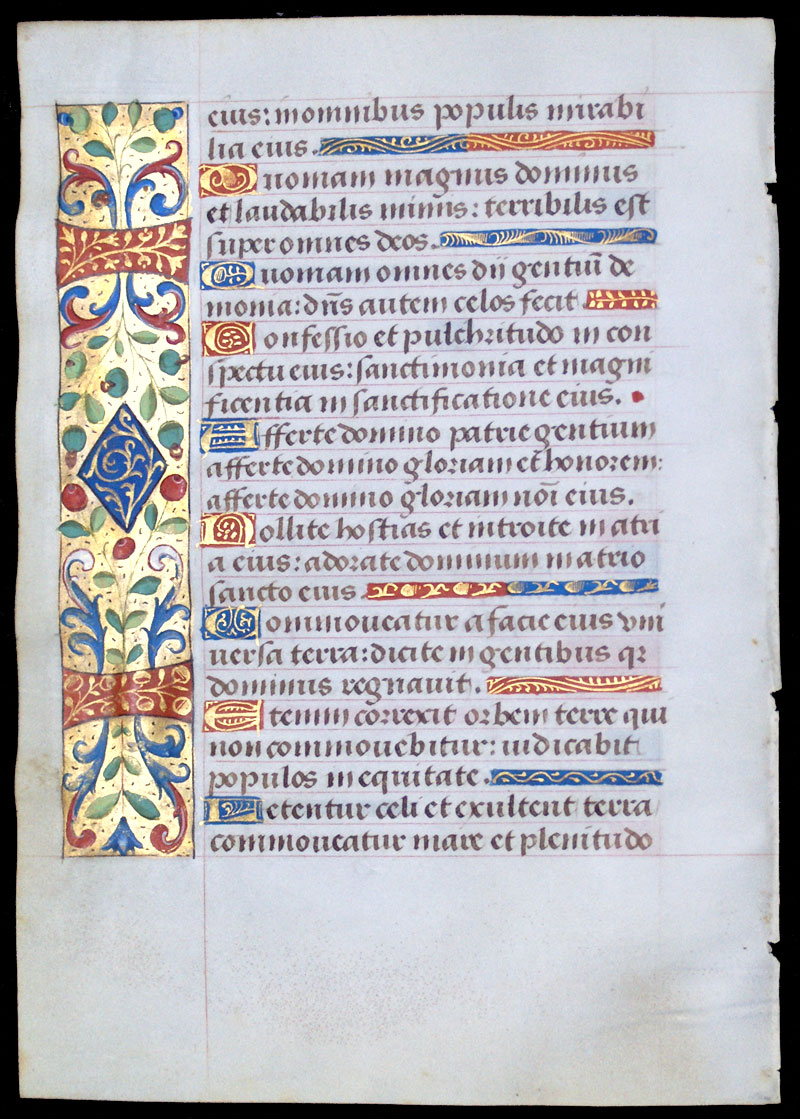 eius: in omnibus populis mirabi
lia eius.
Quoniam magnus dominus
et laudabilis nimis: terribilis est
super omnes deos.
Quoniam omnes dii gentiū de
monia: dn̄s autem celos fecit.
Confessio et pulchritudo in con
spectu eius: sanctimonia et magni
ficentia in sanctificatione eius.
Afferte domino patrie gentium
afferte domino gloriam et honorem:
afferte domino gloriam noī eius.
Tollite hostias et introite in atri
a eius: adorate dominum in atrio
sancto eius
Commoueatur a facie eius vni
uersa terra: dicite in gentibus qz
dominus regnauit.
Etenim correxit orbem terre qui
non commouebitur: iudicabit
populos in equitate.
Letentur celi et exultent terra
commoueatur mare et plenitudo